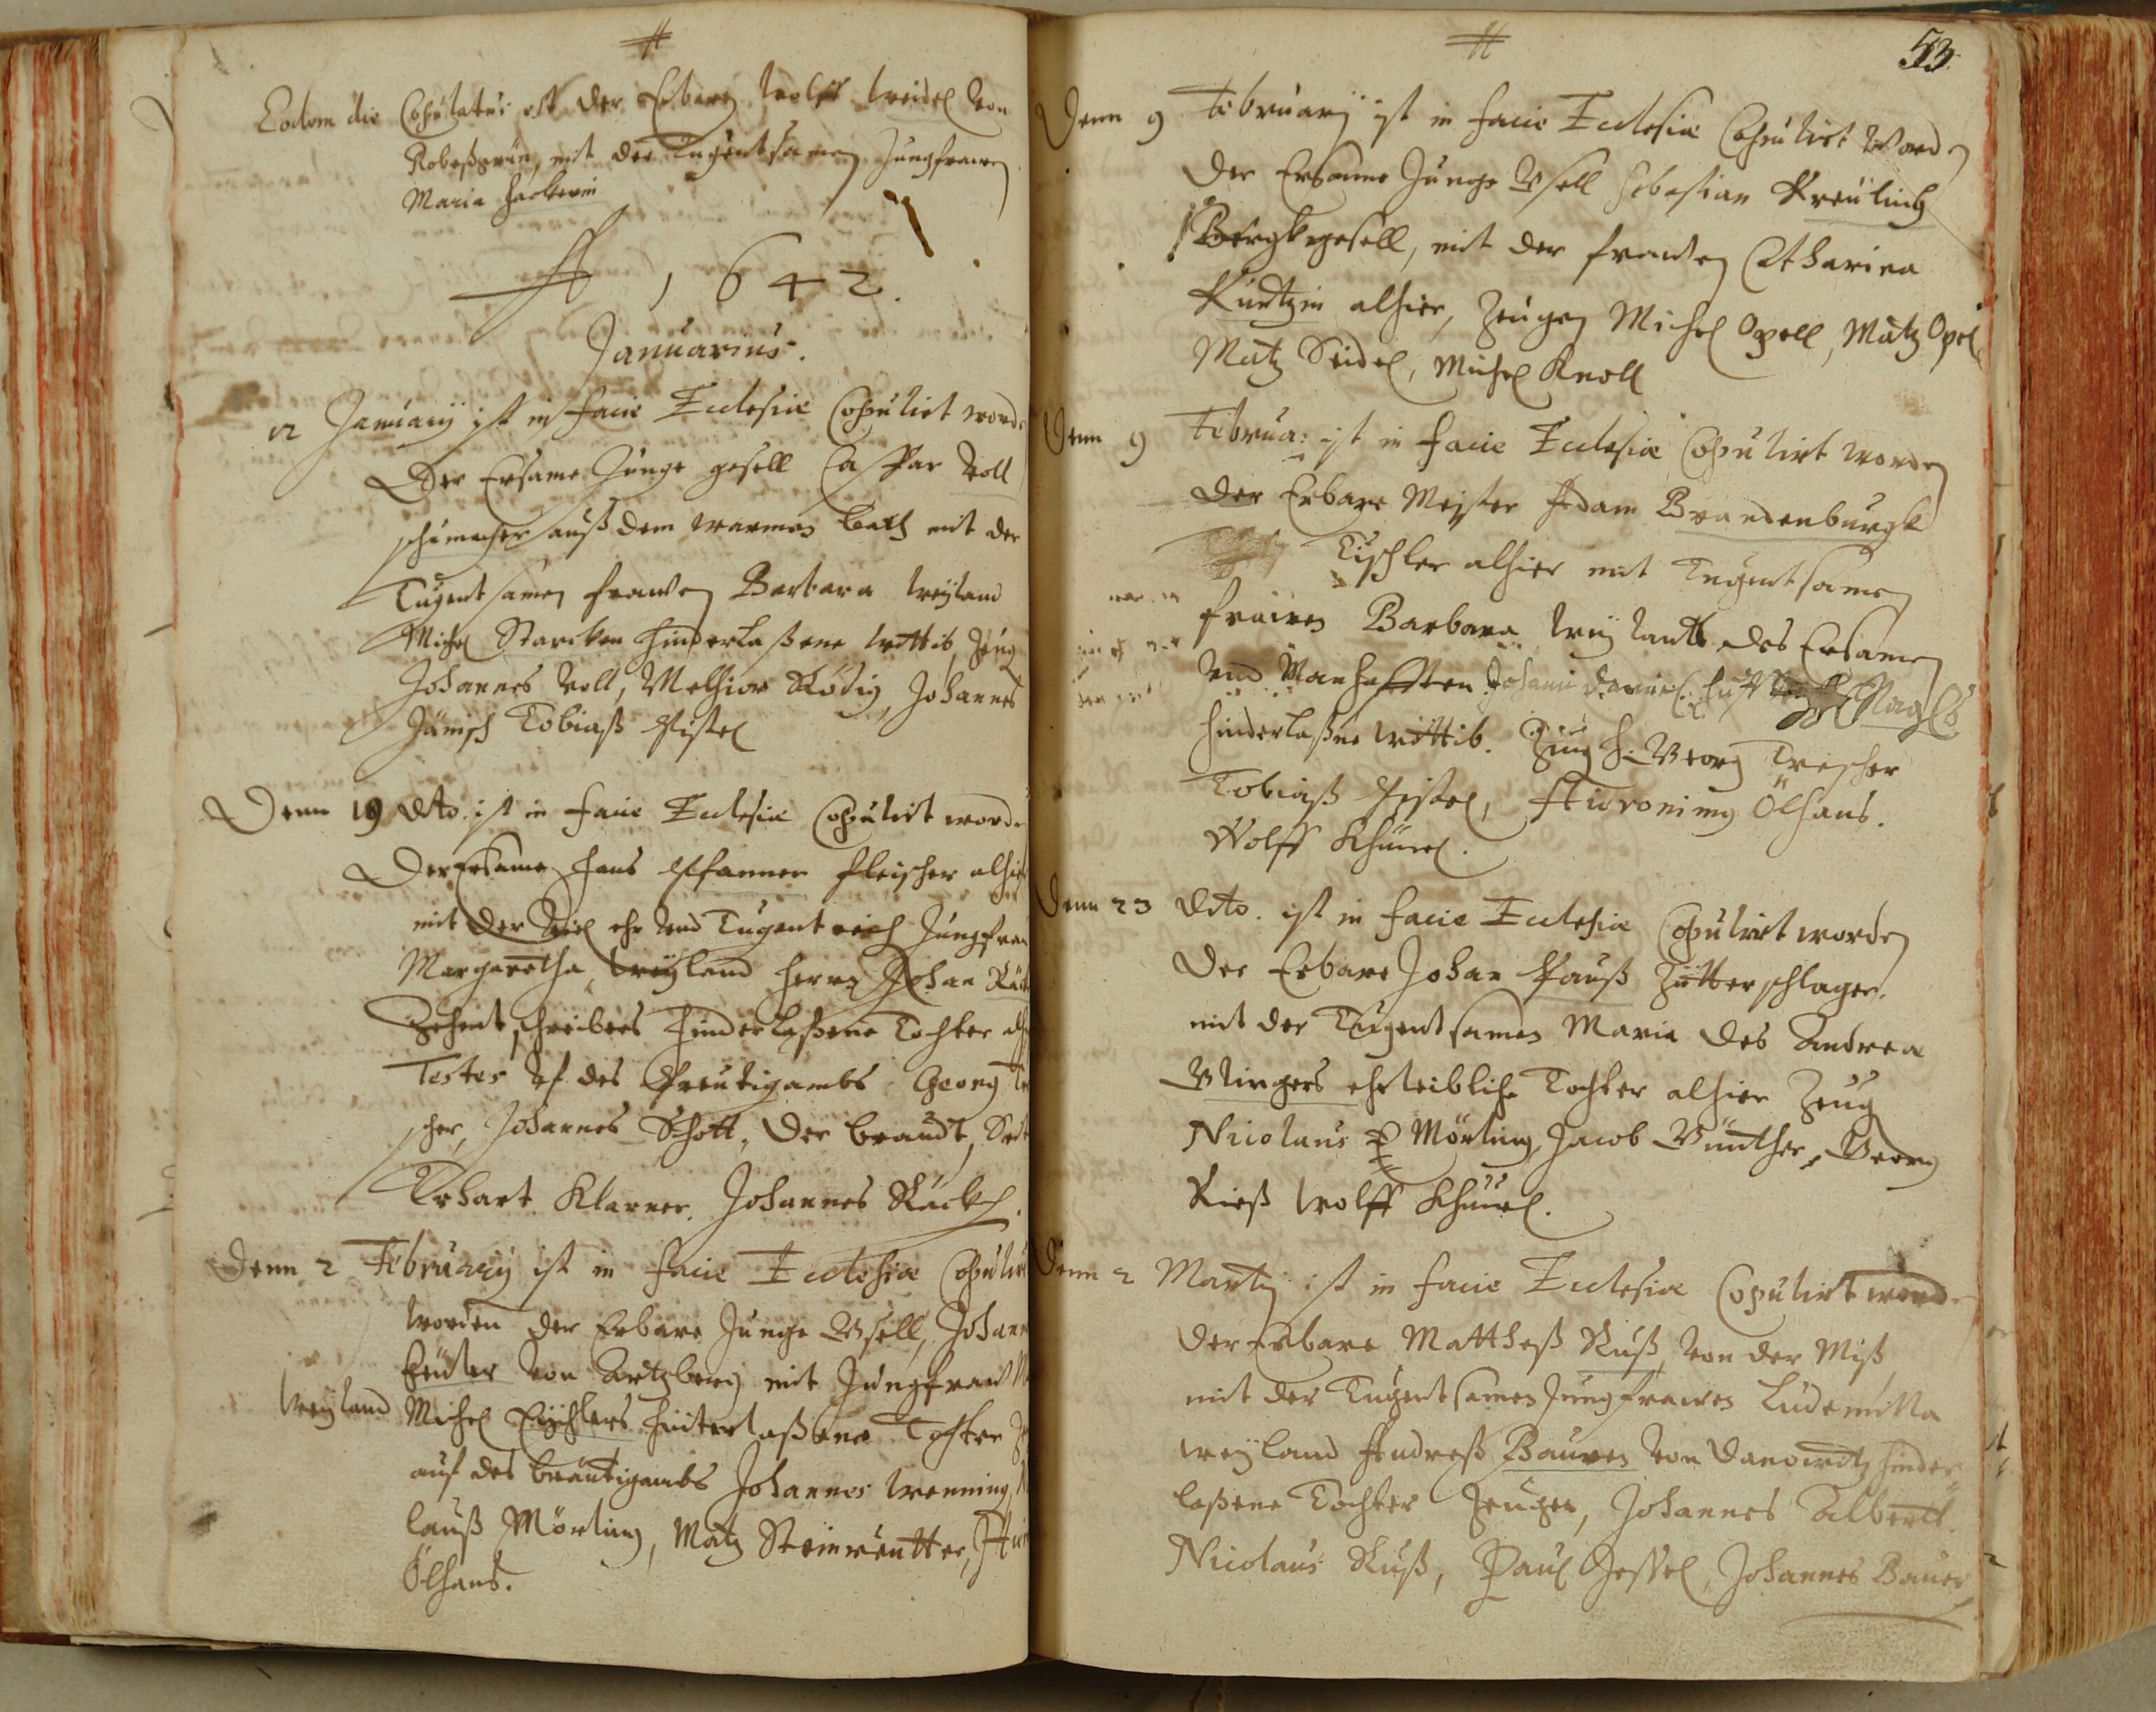 Eodem die Copulatus est der Erbare Wolff Weidel von
Robeßgrün, mit der Tugentsamen Jungfrawen
Maria Hackerin
A 1642.
Januarius.
12 Januarij ist in facie Ecclesiæ Copulirt worde
Der Ersame Junge gesell Caspar Voll
schumacher auß dem warmen bath mit der
Tugentsamen frawen Barbara weyland
Michel Starcken hinderlaßene wittib, Zeug
Johannes Voll, Melchior Rödig, Johannes
Jänisch Tobiaß Pistel
Denn 19 dito. ist in facie Ecclesiæ Copulirt worde
Der Ersame Hans Pfanner fleischer alhier
mit der viel ehr vnd Tugentreich Jungfraw
Margaretha, weyland Herrn Johan
Zehentschreibers hinderlaßene Tochter
Testes vf des Breutigambs Georg
scher, Johannes Schott, der braudt,
Erhart Klarner, Johannes
Denn 2 February ist in facie Ecclesiæ Copulirt
worden der Erbare Junge Gsell, Johann
von Artzberg mit Jungfraw
weyland Michel hinterlaßene Tochter
auf des bräutigambs Johannes Wenning,
lauß Mörling, Matz Steinreutter,
Ölhans.
53.
Denn 9 February ist in facie Ecclesiæ Copulirt word
der Ersame Junge Gsell Sebastian Kreüling
Bergkgesell, mit der frawen Catharina
Kürtzin alhier, Zeugen Michel Opell, Matz Opel
Matz Seidel, Michel Knoll
Denn 9 Februa: ist in facie Ecclesiæ Copulirt worden
der Erbare Meister Adam Brandenburgk
Tischler alhier mit Tugentsamen
frawen Barbara weylandt des Ersamen
vnd Manhafften Johann Daniel Nagls
hinderlaßene wittib. Zeug H. Georg Trescher
Tobiaß Pistel, Hieronimg Ölhans.
Wolff
Denn 23 dito. ist in facie Ecclesiæ Copulirt worden
Der Erbare Johan Pauß Zütterschlager.
mit der Tugentsamen Maria des Andrea
ehrleibliche Tochter alhier Zeug
Nicolaus Mörling, Jacob Günther, Georg
Rieß Wolff
Denn 2 Marty ist in facie Ecclesiæ Copulirt word
der Erbare Mattheß Ruß, von der Miß
mit der Tugentsamen Jungfrawen Ludemilla
weyland Andreß Bauren von hinder
laßene Tochter Zeugen, Johannes Albertt.
Nicolaus Ruß, Paul Jessel, Johannes Bauer